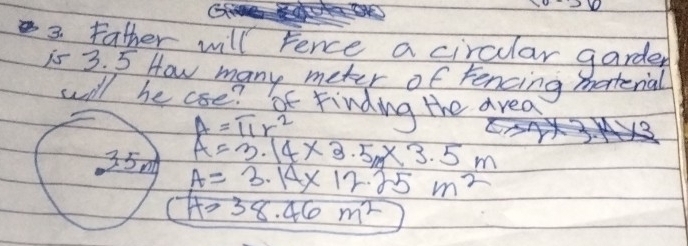 3. Father will Fence a circular garden
is 3.5 How many meter of Fencing material
will he cse? of Finding the area
A = πr²
A = 3.14 × 3.5 × 3.5 m
3.5 m
A = 3.14 × 12.25 m²
A = 38.46 m²